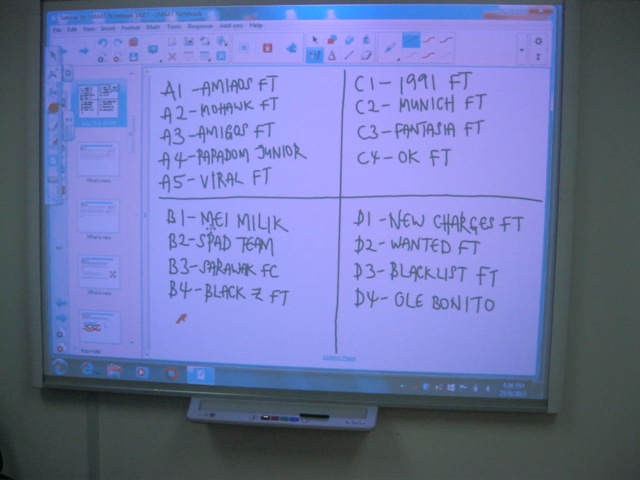 File Edit View Insert Format Math Tools Response Add-ons Help
A1 - AMIAOS FT
A2 - MOHAWK FT
A3 - AMIGOS FT
A4 - PAPADOM JUNIOR
A5 - VIRAL FT
C1 - 1991 FT
C2 - MUNICH FT
C3 - FANTASIA FT
C4 - OK FT
B1 - MEI MILIK
B2 - SPAD TEAM
B3 - SARAWAK FC
B4 - BLACK Z FT
D1 - NEW CHARGES FT
D2 - WANTED FT
D3 - BLACKLIST FT
D4 - OLE BONITO
Extend Page
4:56 PM